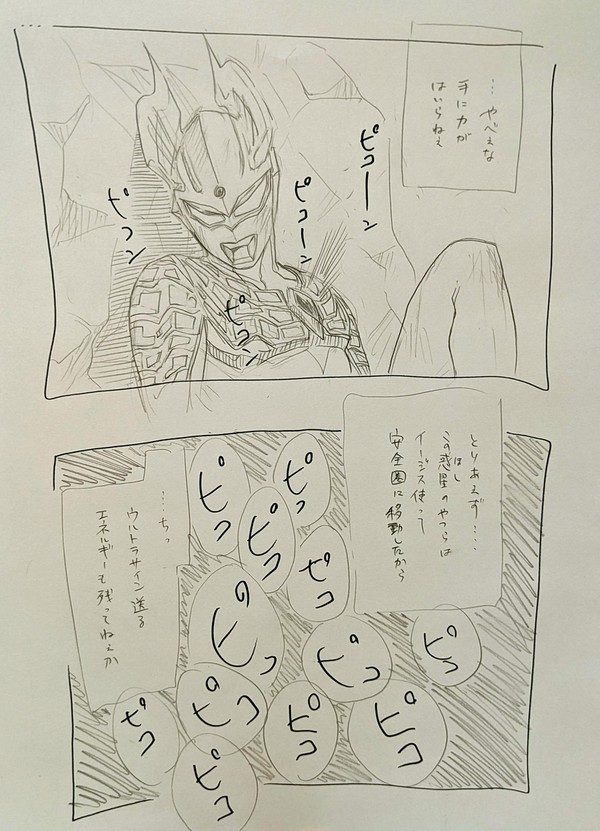 …やべぇな
手に力が
はいらねぇ
ピコーン
ピコーン
ピコン
ピコン
とりあえず…
この惑星のやつらは
ほし
イージス使って
安全圏に移動したから
…ちっ
ウルトラサイン送る
エネルギーも残ってねぇか
ピッ
ピコ
ピコ
ピコ
ピコッ
ピコ
ピコ
ピコ
ピコ
ピコ
ピコ
ピコ